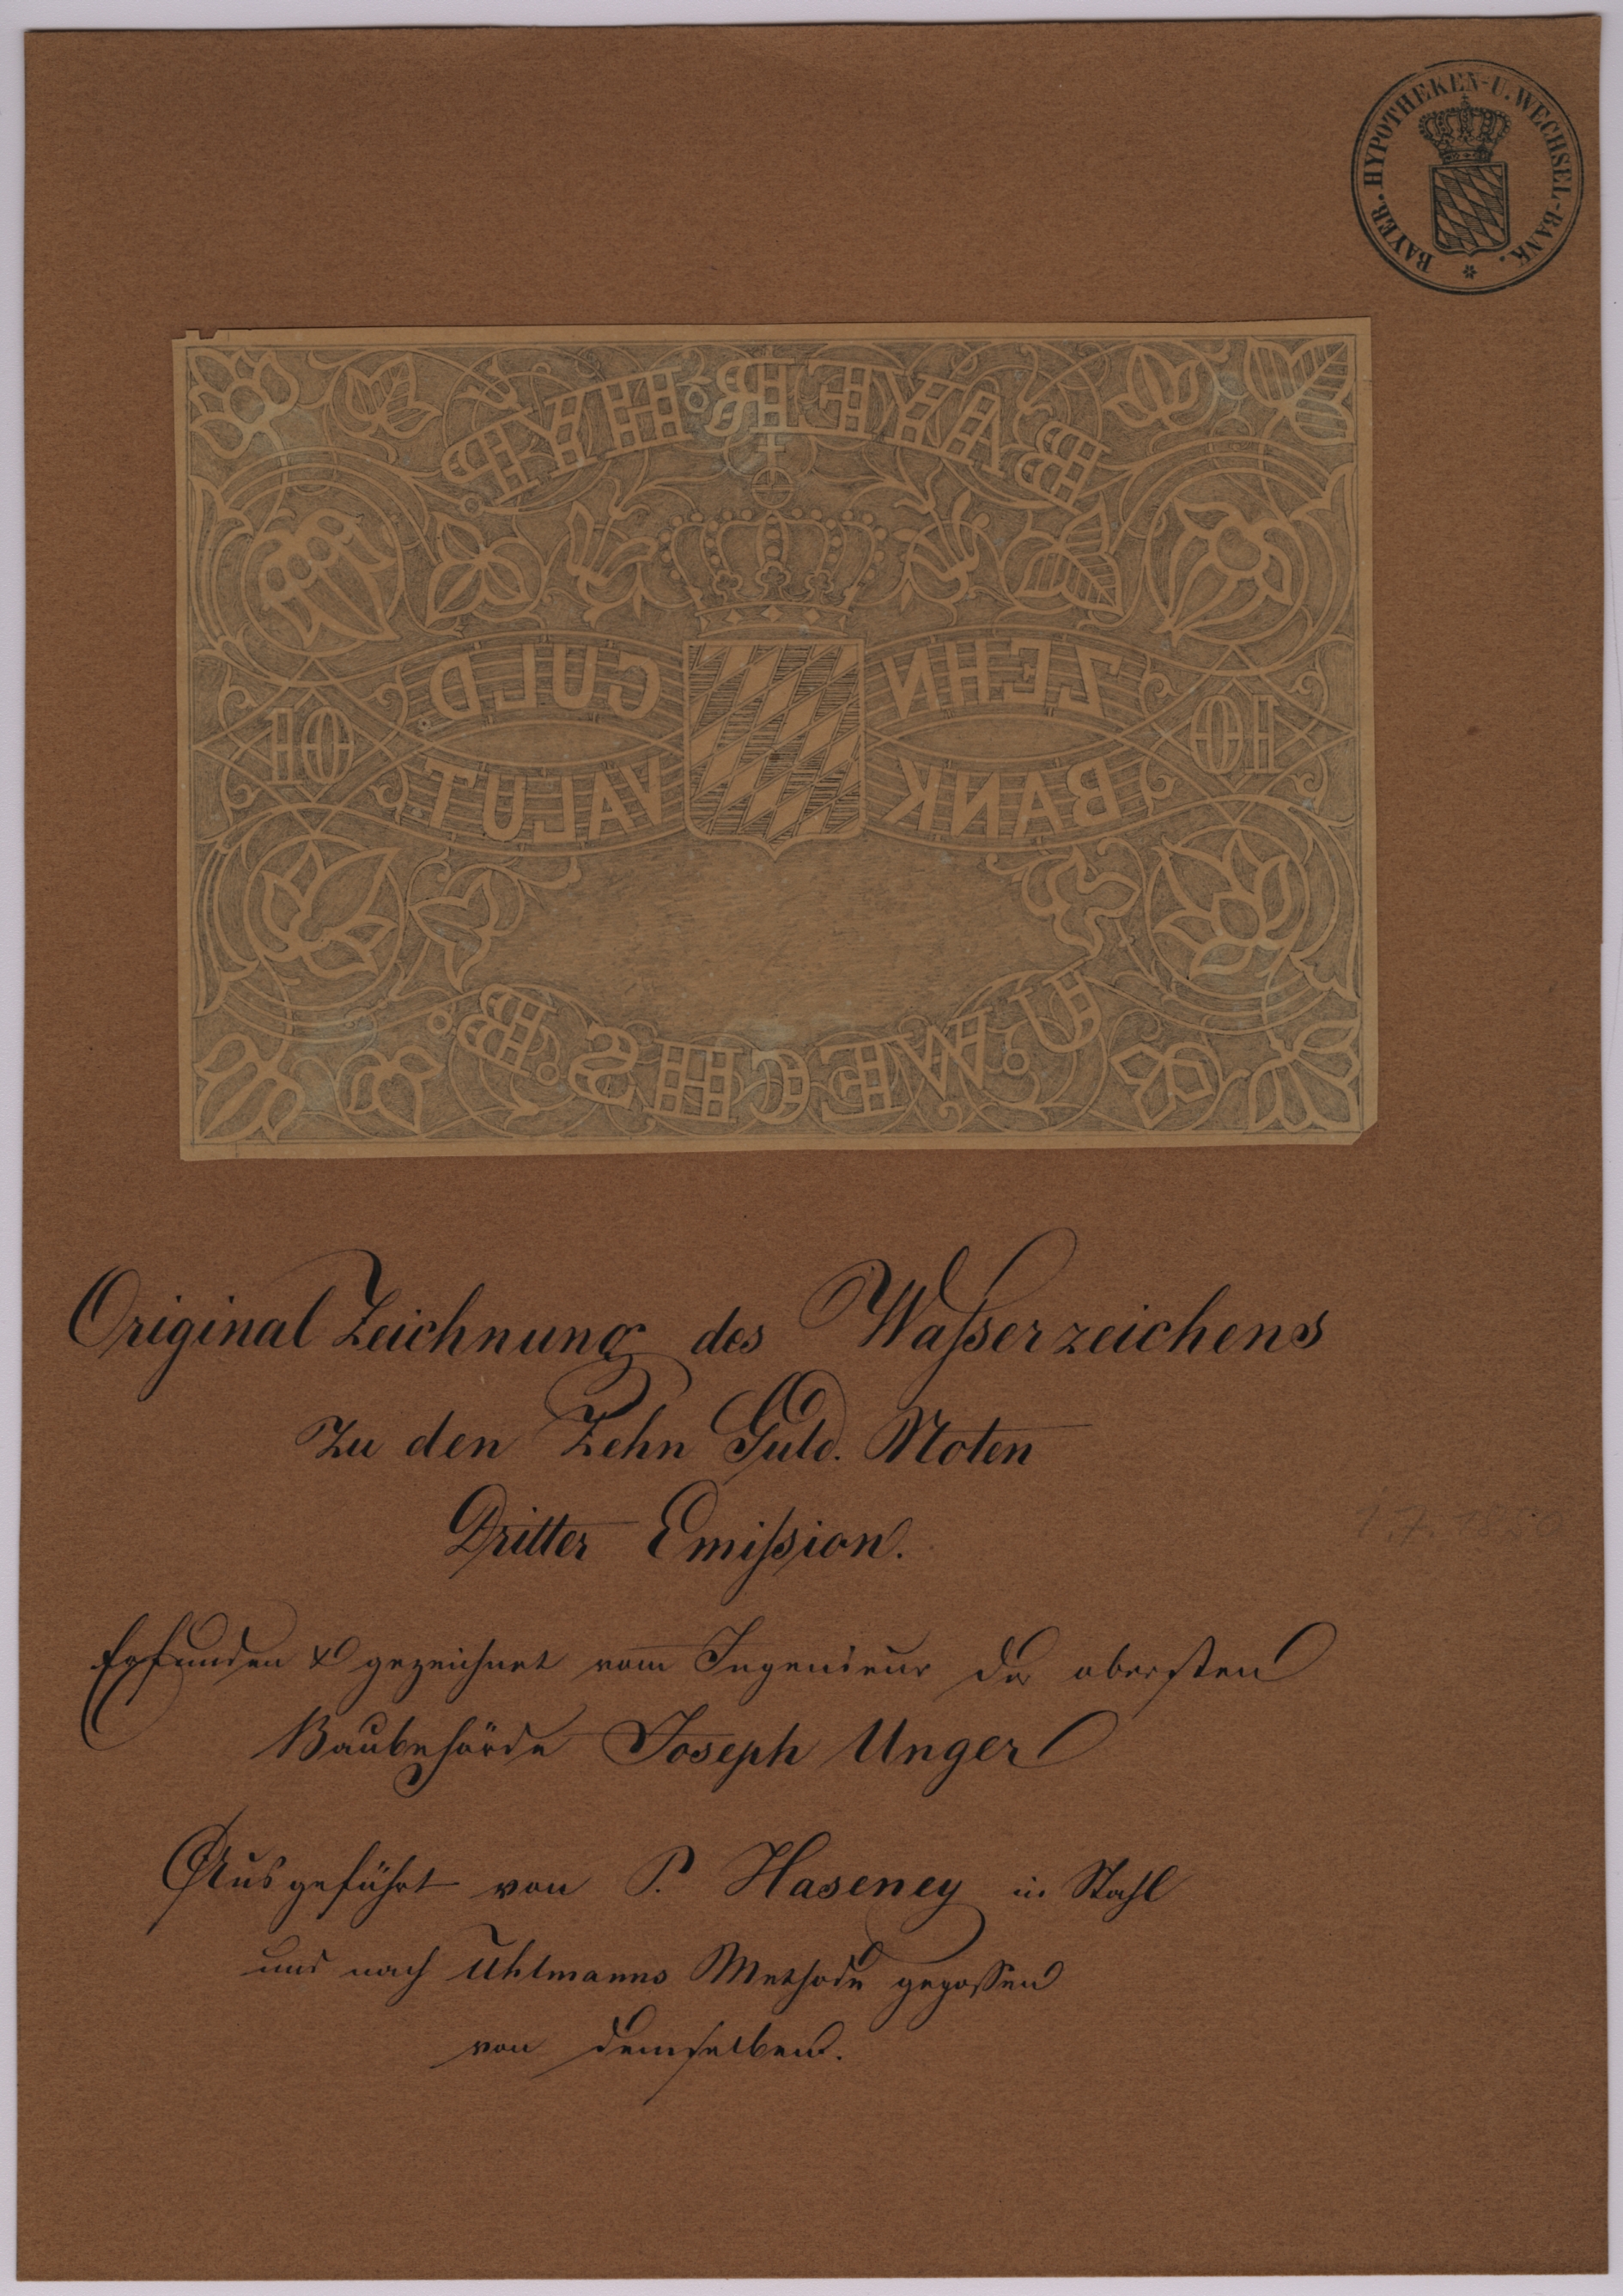 BAYER. HYPOTHEKEN-U. WECHSEL-BANK.
BAYER. HYP.
ZEHN GULD.
10 10
BANK VALUT.
U. WECHS. B.
Original Zeichnung des Waſserzeichens
Zu den Zehn Guld. Noten
Dritter Emiſsion.
Erfunden & gezeichnet vom Ingenieur der obersten
Baubehörde Joseph Unger
Ausgeführt von P. Haseney in Stahl
und nach Uhlmanns Methode gegossen
von demselben.